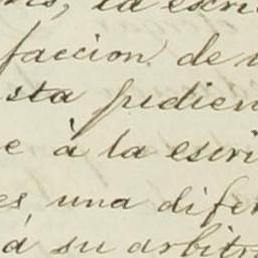 la escri
faccion de
sta pidien
e à la escri
es una difer
á su arbitr